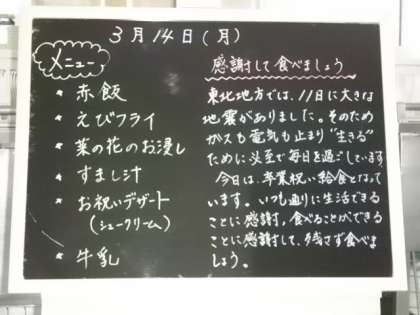 3月14日(月)
メニュー
赤飯
えびフライ
菜の花のお浸し
すまし汁
お祝いデザート
(シュークリーム)
牛乳
感謝して食べましょう
東北地方では、11日に大きな
地震がありました。そのため
ガスも電気も止まり"生きる"
ために必至で毎日を過ごしています。
今日は、卒業祝い給食となって
います。いつも通りに生活できる
ことに感謝し、食べることができる
ことに感謝して、残さず食べま
しょう。